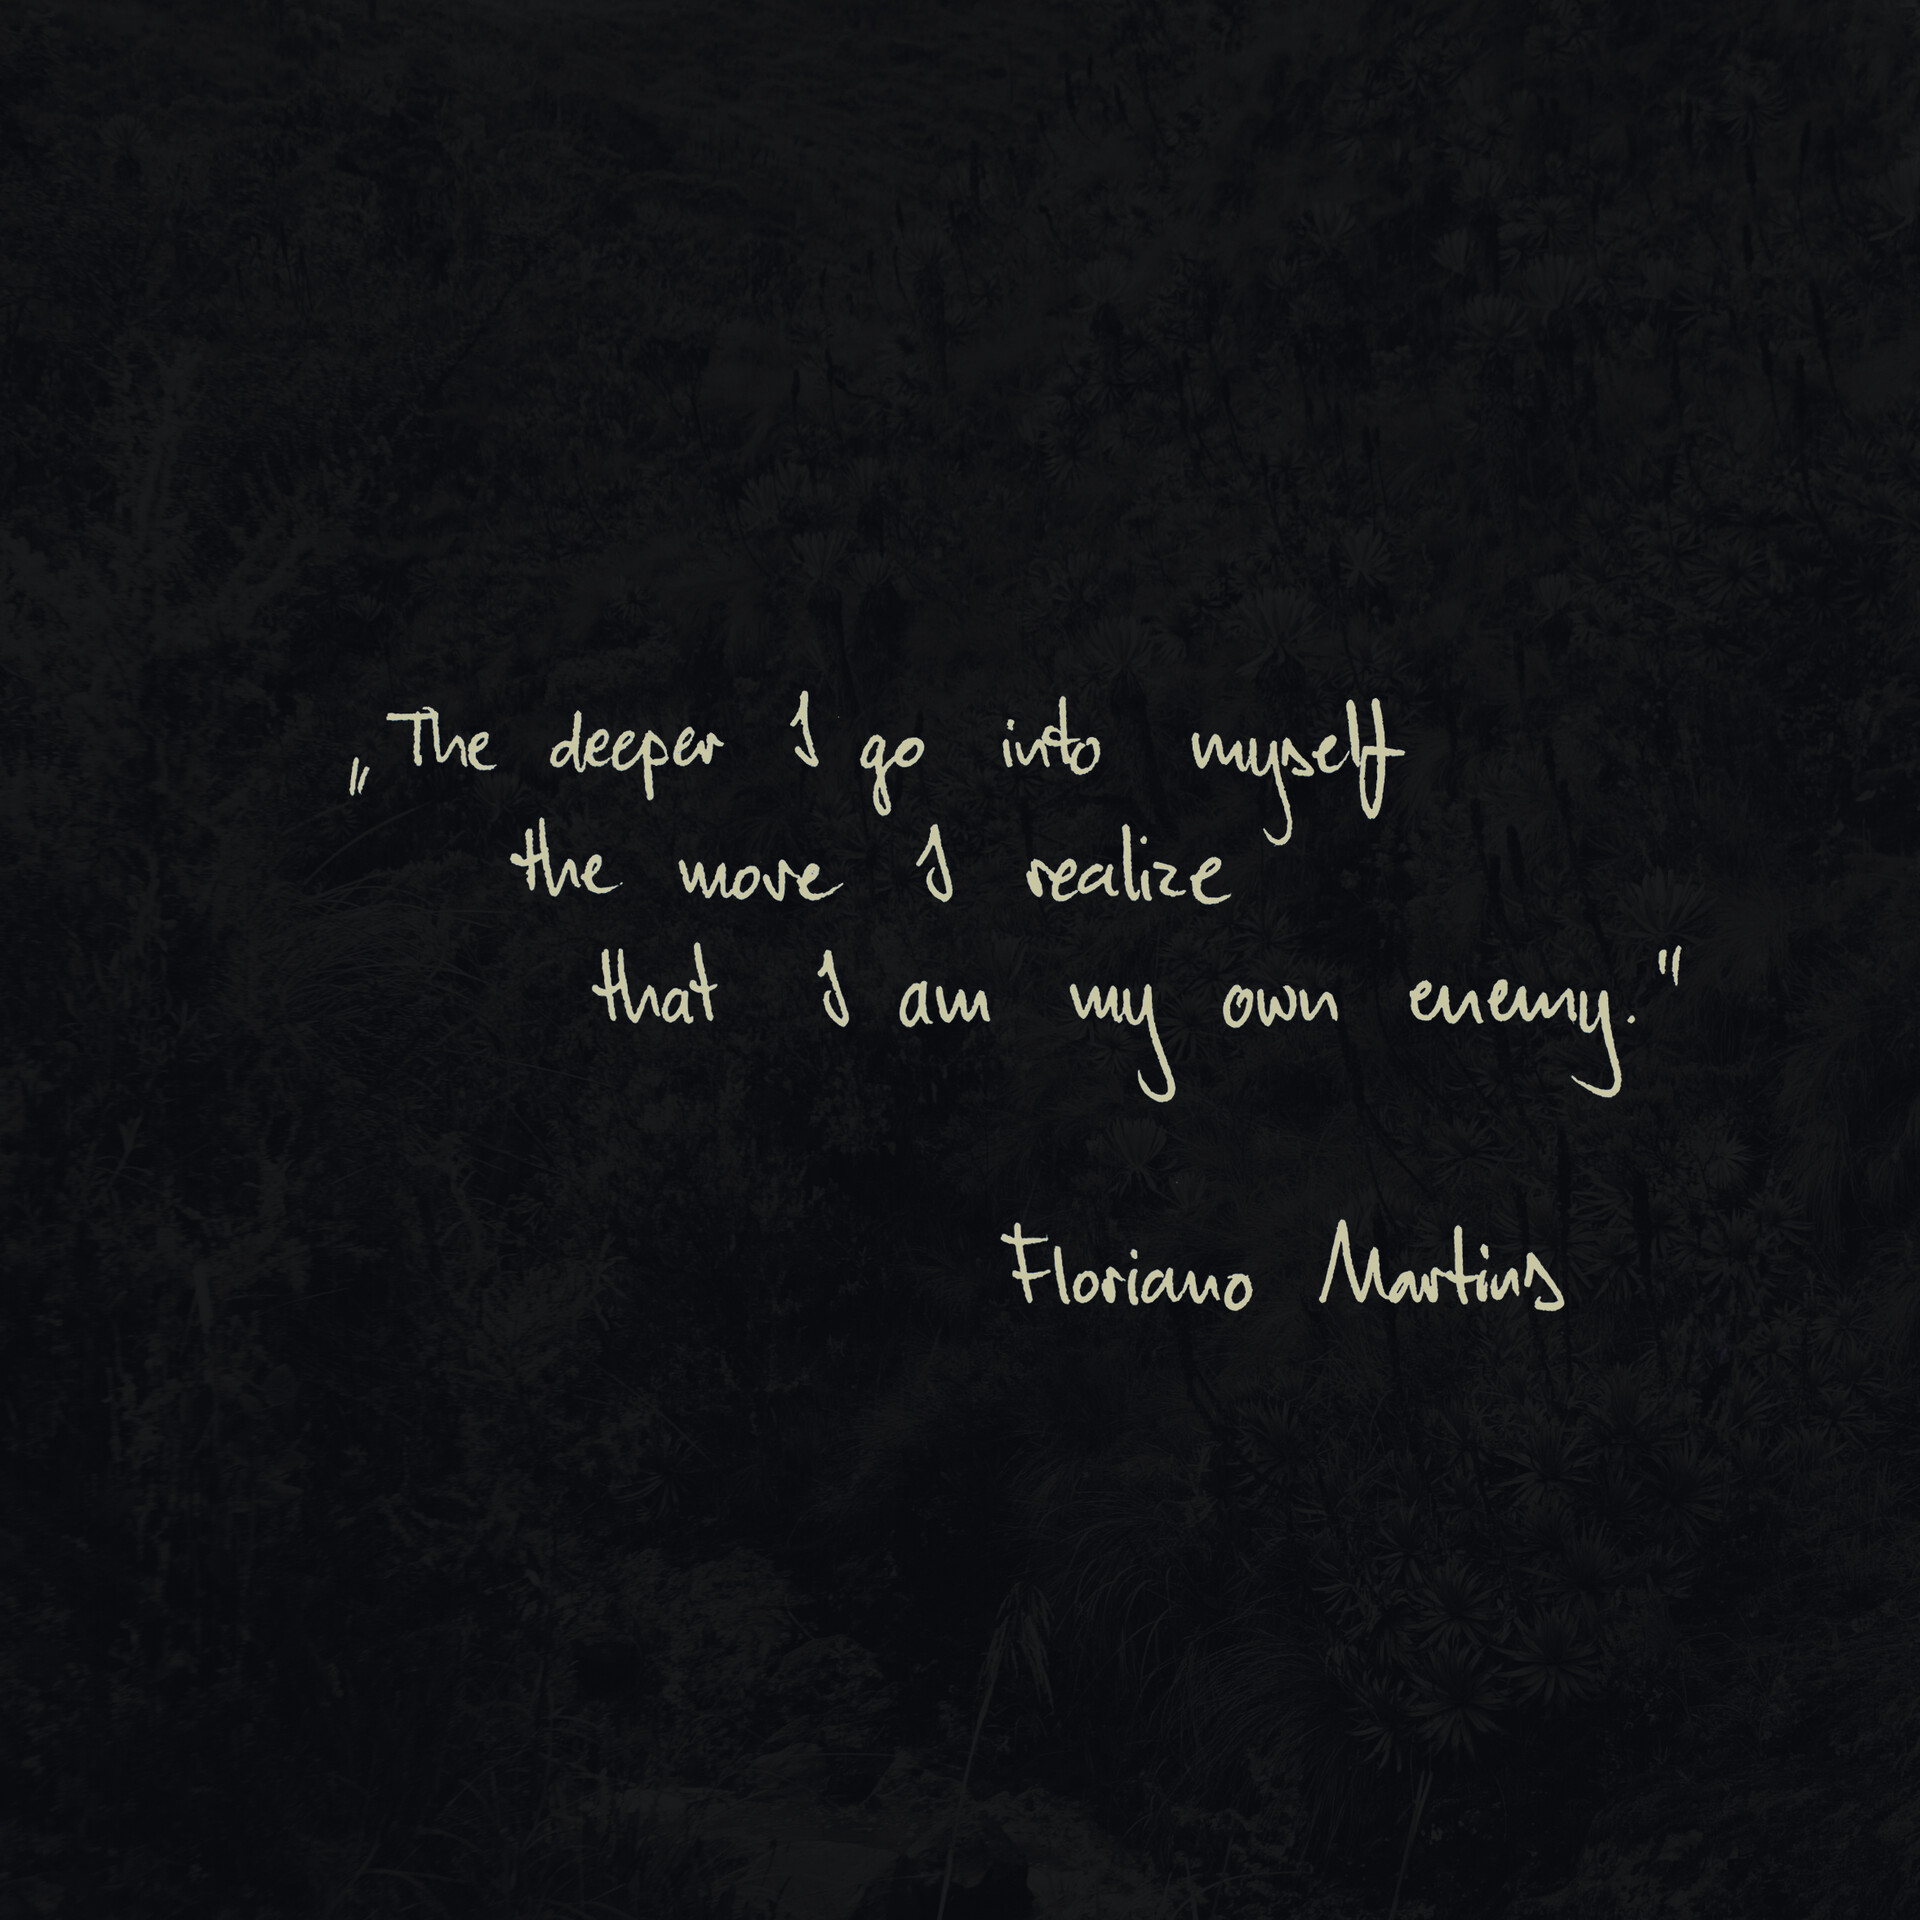 „The deeper I go into myself
the more I realize
that I am my own enemy."
Floriano Martins